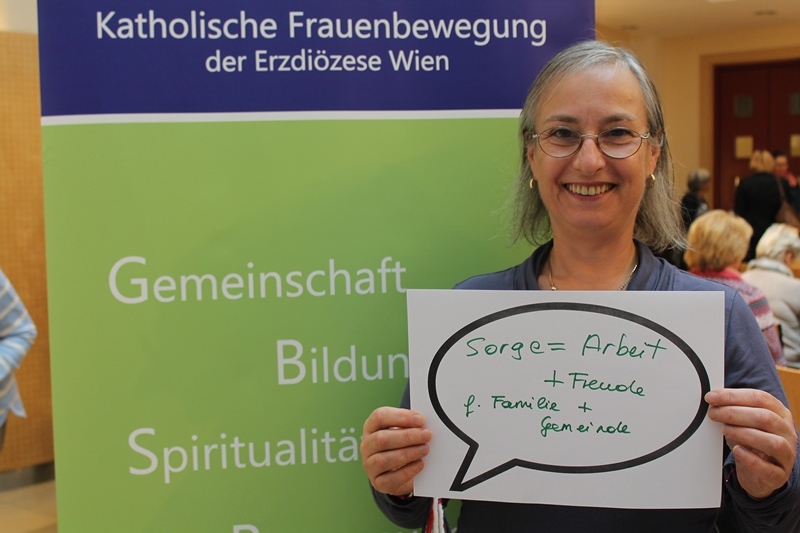 Katholische Frauenbewegung
der Erzdiözese Wien
Gemeinschaft
Bildun
Spiritualitä
Sorge = Arbeit
+ Freude
f. Familie +
Gemeinde